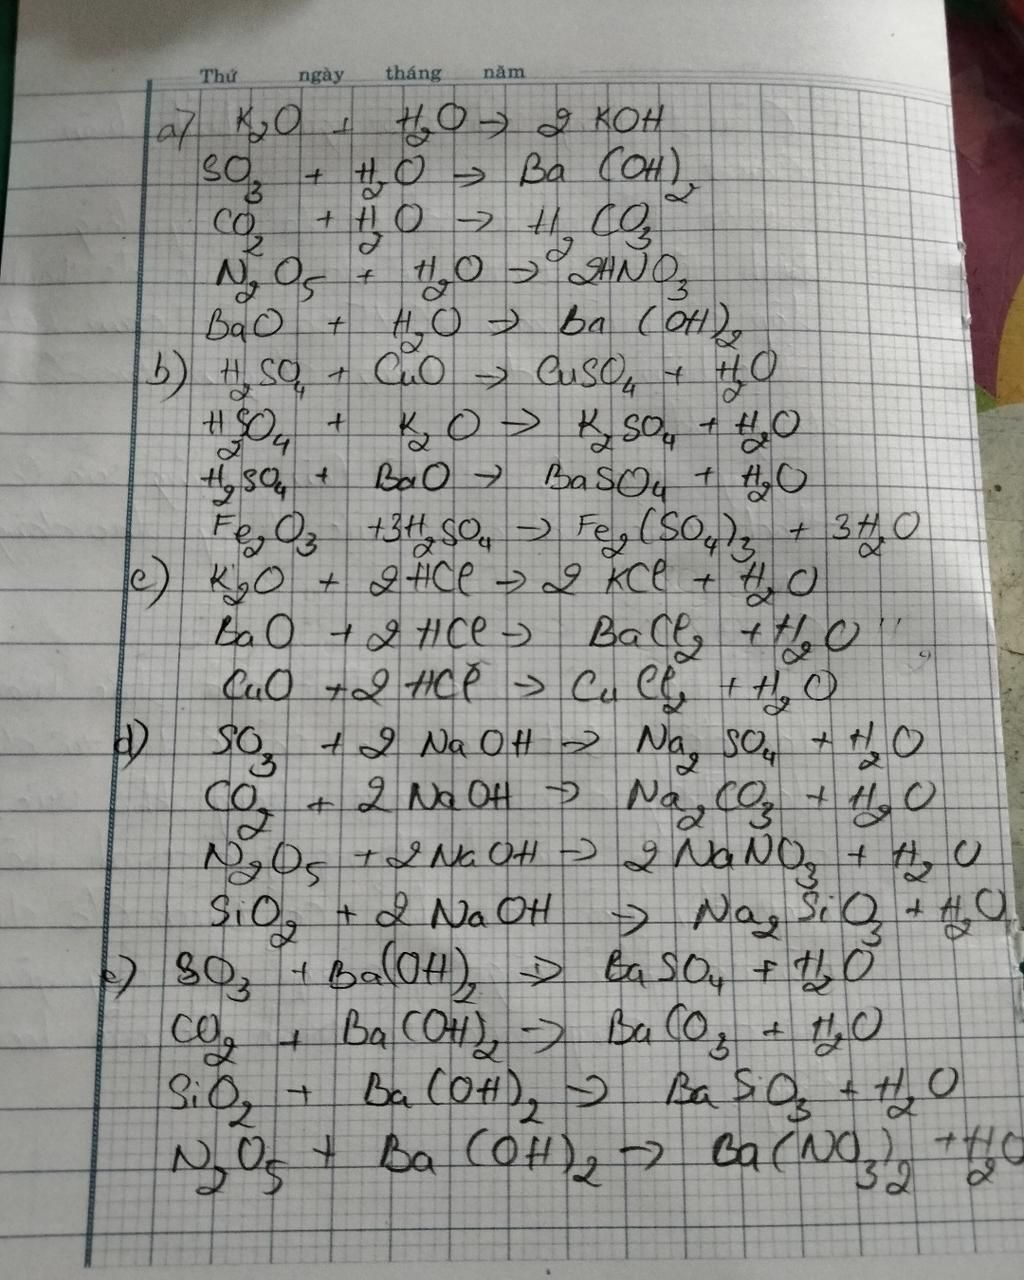 Thứ ngày tháng năm
a) K₂O + H₂O → 2 KOH
SO₃ + H₂O → Ba (OH)₂
CO₂ + H₂O → H₂CO₃
N₂O₅ + H₂O → 2HNO₃
BaO + H₂O → Ba (OH)₂
b) H₂SO₄ + CuO → CuSO₄ + H₂O
H₂SO₄ + K₂O → K₂SO₄ + H₂O
H₂SO₄ + BaO → BaSO₄ + H₂O
Fe₂O₃ +3H₂SO₄ → Fe₂(SO₄)₃ + 3H₂O
c) K₂O + 2HCl → 2 KCl + H₂O
BaO + 2 HCl → BaCl₂ + H₂O
CuO + 2 HCl → CuCl₂ + H₂O
d) SO₃ + 2 NaOH → Na₂SO₄ + H₂O
CO₂ + 2 NaOH → Na₂CO₃ + H₂O
N₂O₅ + 2NaOH → 2 NaNO₃ + H₂O
SiO₂ + 2 NaOH → Na₂SiO₃ + H₂O
e) SO₃ + Ba(OH)₂ → BaSO₄ + H₂O
CO₂ + Ba(OH)₂ → BaCO₃ + H₂O
SiO₂ + Ba(OH)₂ → BaSiO₃ + H₂O
N₂O₅ + Ba (OH)₂ → Ba(NO₃)₂ + H₂O